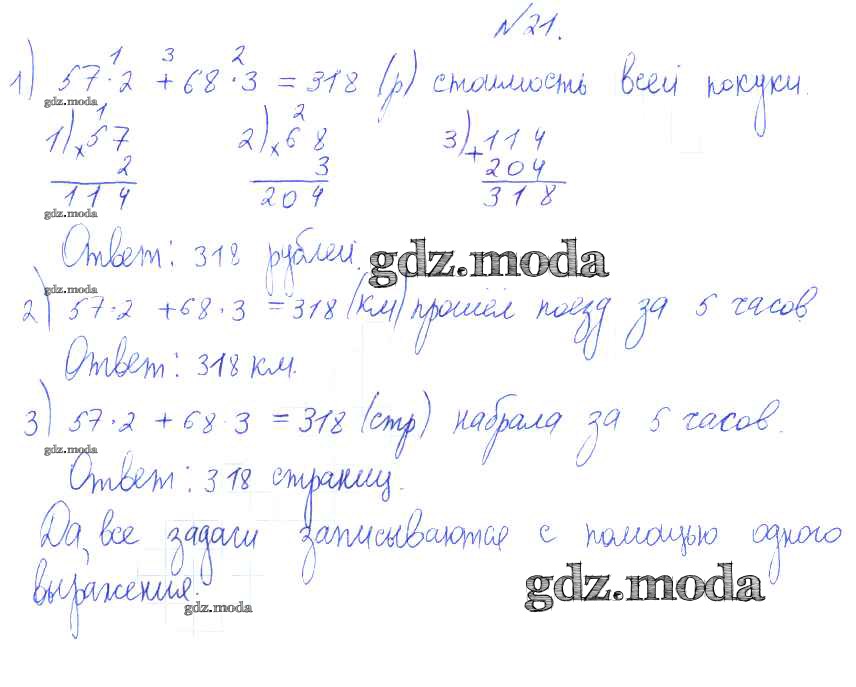 №21.
1) 57·2 + 68·3 = 318 (р) стоимость всей покуки.
gdz.moda
1) × 57 2) × 68 3) + 114
2 3 204
114 204 318
gdz.moda
Ответ: 318 рублей.
gdz.moda
gdz.moda
2) 57·2 + 68·3 = 318 (км) прошёл поезд за 5 часов
Ответ: 318 км.
3) 57·2 + 68·3 = 318 (стр) набрала за 5 часов.
gdz.moda
Ответ: 318 страниц.
Да, все задачи записываются с помощью одного
выражения.
gdz.moda
gdz.moda